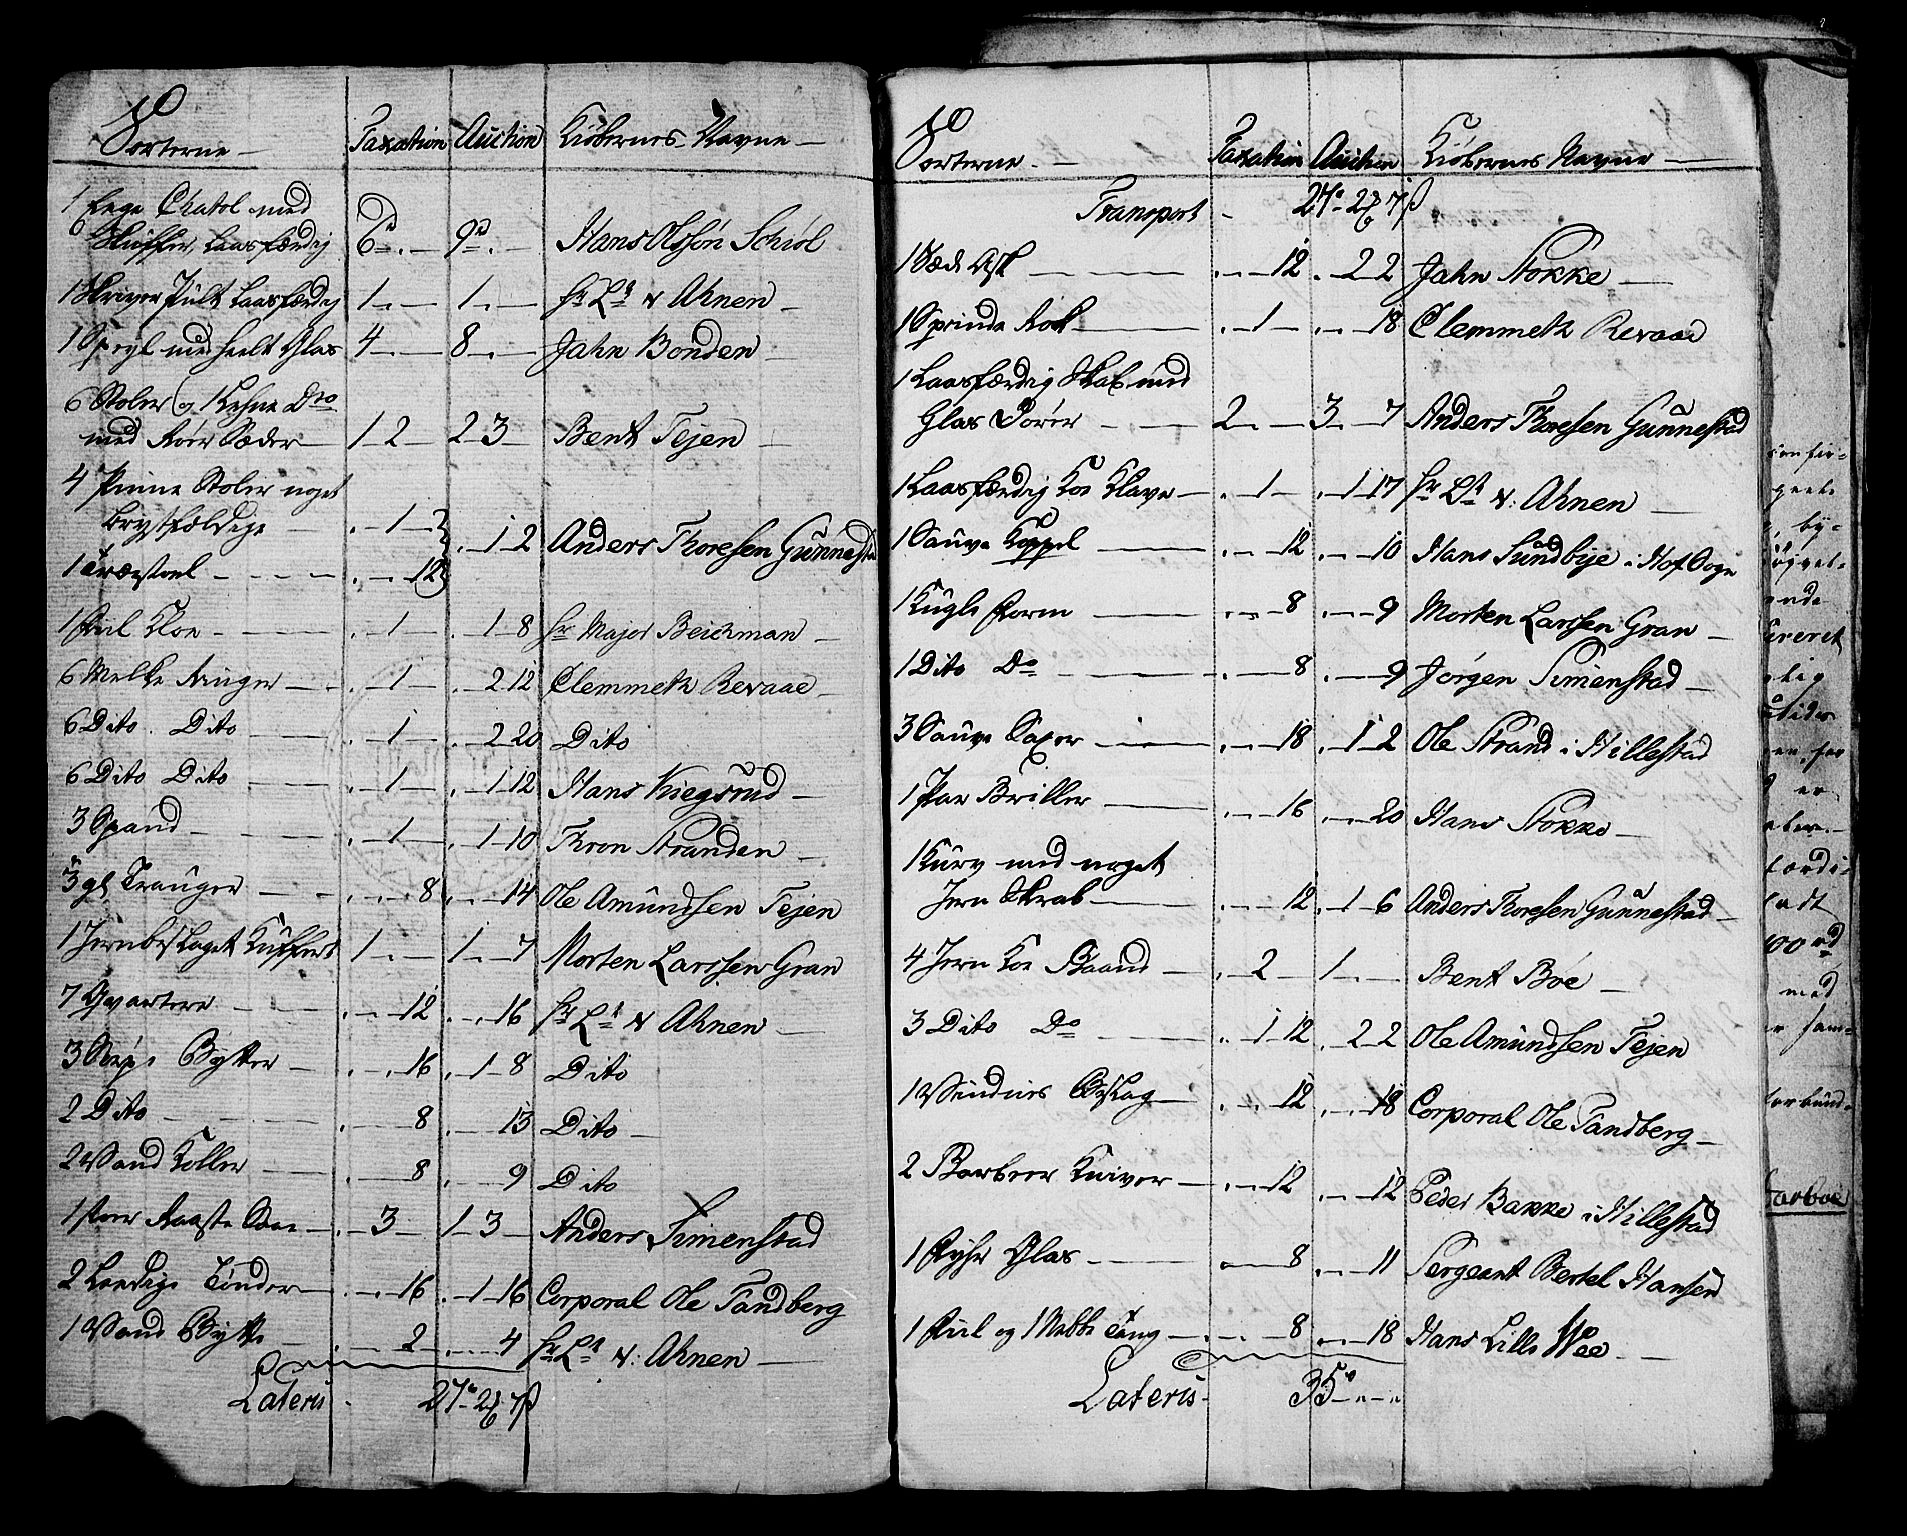 Sorterne Taxation Auction Kiøbernes Navne
1 Eege Chatol med
6 Skuffer, Laasfærdig 6 9 Hans Olssøn Schiøl
1 Skriver Pult Laasfærdig 1 1 Hr Lt v Ahnen
1 Speyl med heelt Glas 4 8 Jahn Bonden
6 Stoler og Do
med Rør Sæder 1 2 2 3 Bent Tejen
4 Pinne Stoler noget
brystfældige 1
1 2 Anders Thoresen Gunnestad
1 Træstoel 12
1 Kloe 1 1 8 Hr Major Beichman
6 Melke Ringer 1 2 12 Clemmeth Revaae
6 Dito Dito 1 2 20 Dito
6 Dito Dito 1 1 12 Hans Kiegsrud
3 Spand 1 1 10 Thron Stranden
3 gl Trauger 8 14 Ole Amundsen Tejen
1 Jernbeslaget Kuffert 1 1 7 Morten Larssen Gran
7 Qvartere 12 16 Hr Lt v Ahnen
3 Bytter 16 1 8 Dito
2 Dito 8 13 Dito
2 Vand Koller 8 9 Dito
1 Raaste 3 1 3 Anders Simenstad
2 Leedige Tønder 16 1 16 Corporal Ole Sandberg
1 Vand Bytte 2 4 Hr Lt v: Ahnen
Lateris 27 2 7
Sorterne Taxation Auction Kiøbernes Navne
Transport 27 2 7
1 Sæde Ask 12 2 2 Jahn Stokke
1 Spinde Rok 1 18 Clemmeth Revaae
1 Laasfærdig Skab med
Glas Dører 2 3 7 Anders Thoresen Gunnestad
1 Laasfærdig Koe Klave 1 1 17 Hr Lt v: Ahnen
1 Sauve Koppel 12 10 Hans Sundbye i Hof Sogn
1 Kugle Form 8 9 Morten Larssen Gran
1 Dito Do 8 9 Jørgen Simenstad
3 Sauve Saxer 18 1 2 Ole Strand i Hillestad
1 Par Briller 16 20 Hans Stokke
1 Kurv med noget
Jern Skrab 12 1 6 Anders Thoresen Gunnestad
4 Jern Koe Baand 2 1 Bent Boe
3 Dito Do 1 12 2 2 Ole Amundsen Tejen
1 Vindues Beslag 12 18 Corporal Ole Sandberg
2 Barbeer Kniver 12 12 Peder Bakke i Hillestad
1 Glas 8 11 Sergeant Bertel Hansen
1 Fiil og 1 Nebbe Tang 8 18 Hans Lille Wee
Lateris 35